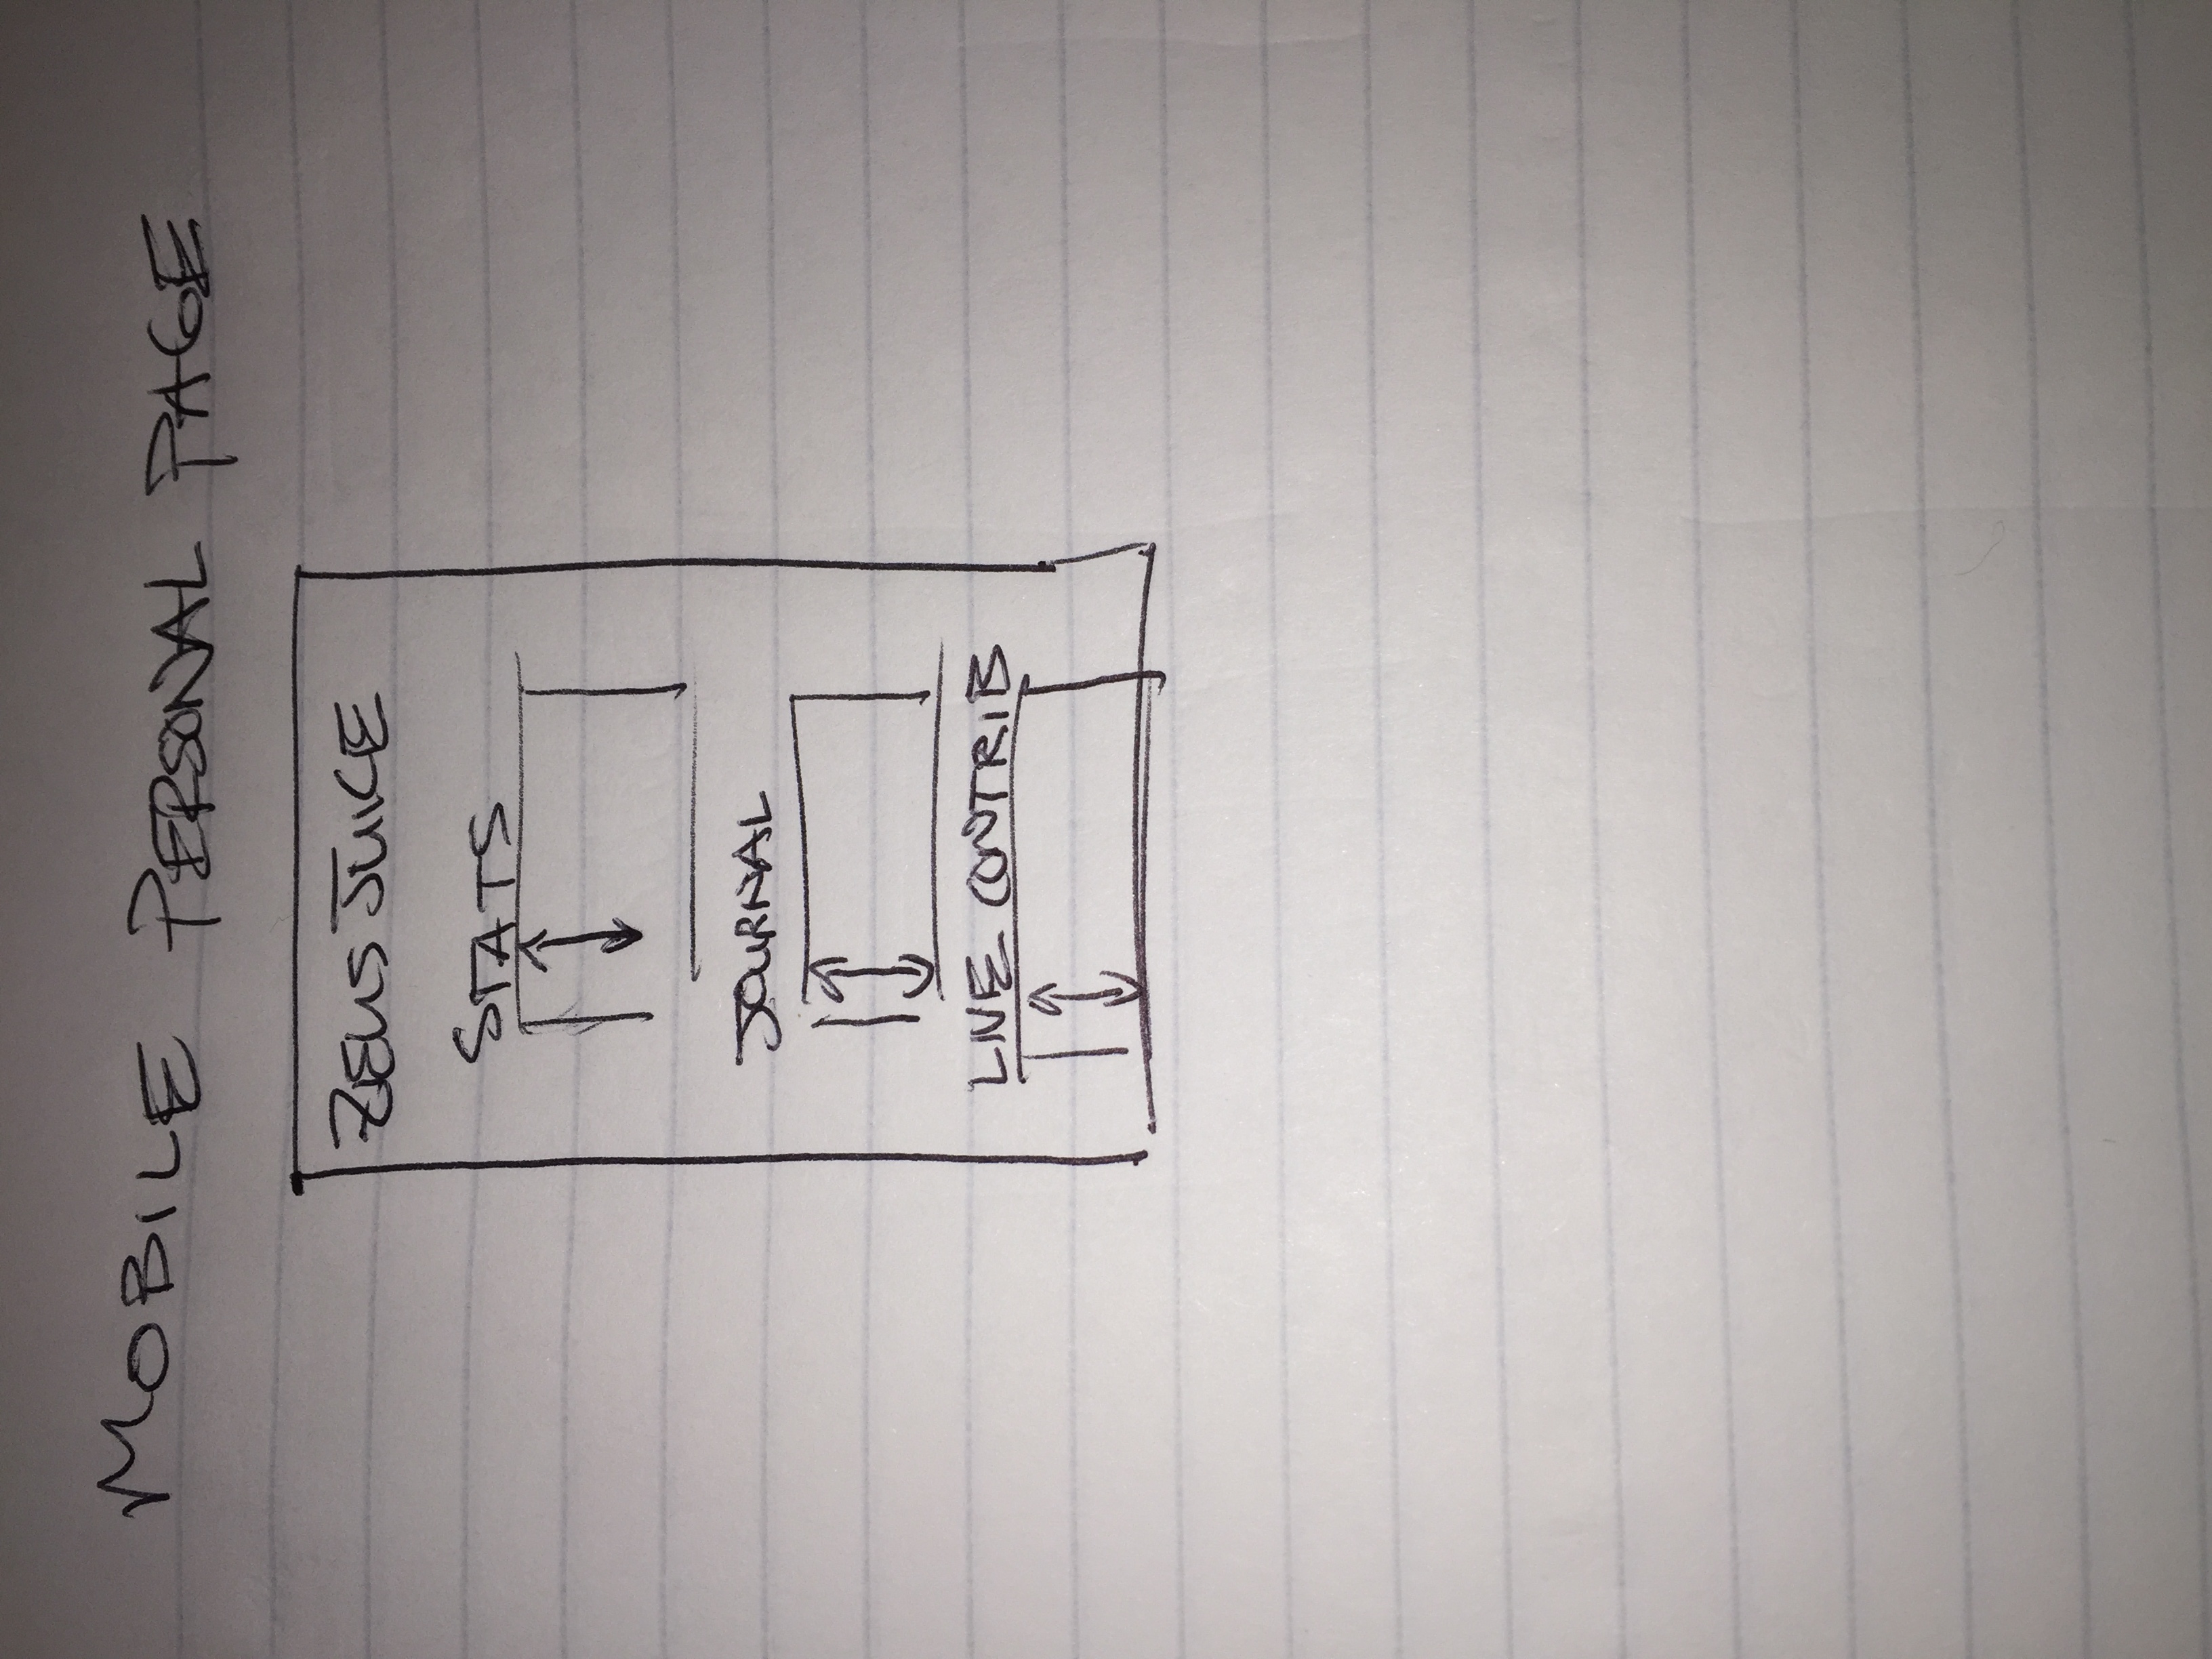 MOBILE PERSONAL PAGE
ZEUS JUICE
STATS
JOURNAL
LIVE CONTRIB